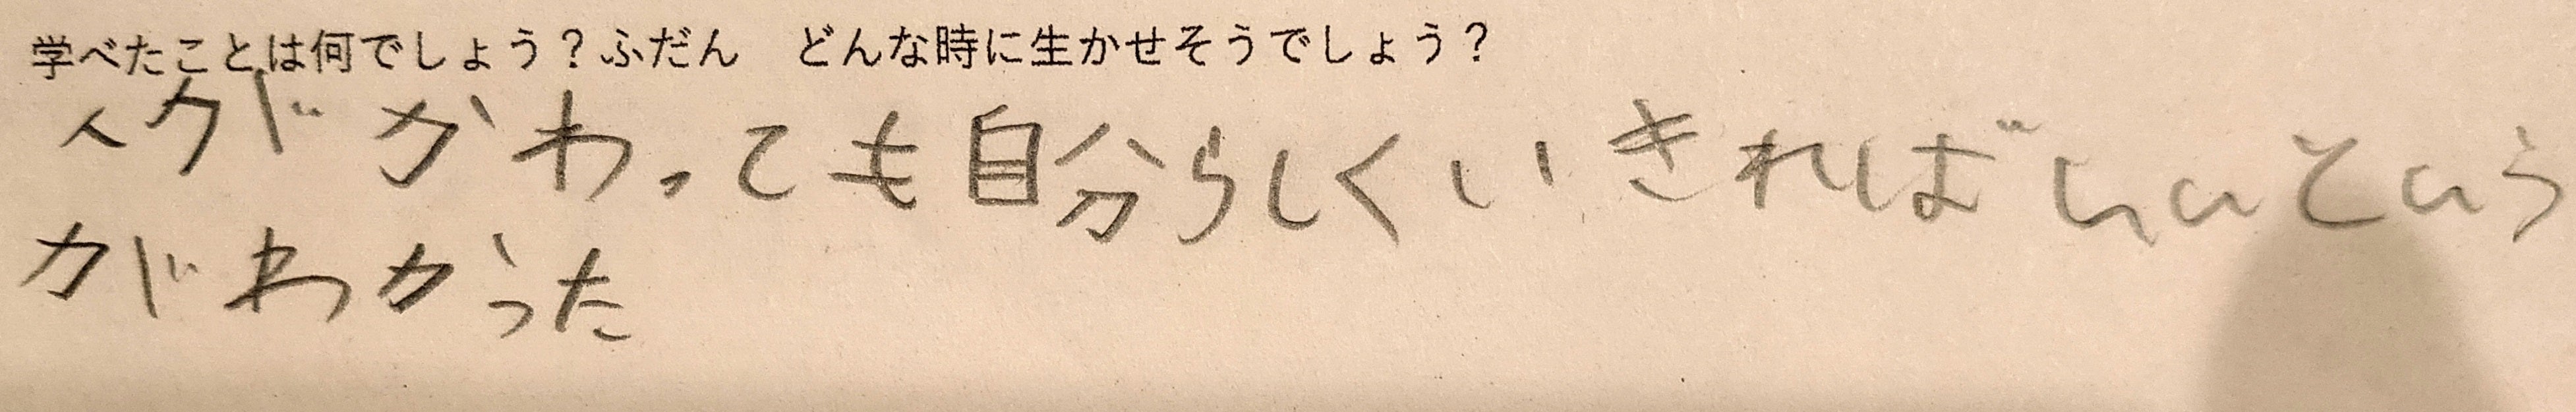 学べたことは何でしょう？ふだん　どんな時に生かせそうでしょう？
人がかわっても自分らしくいきればいいという
がわかった